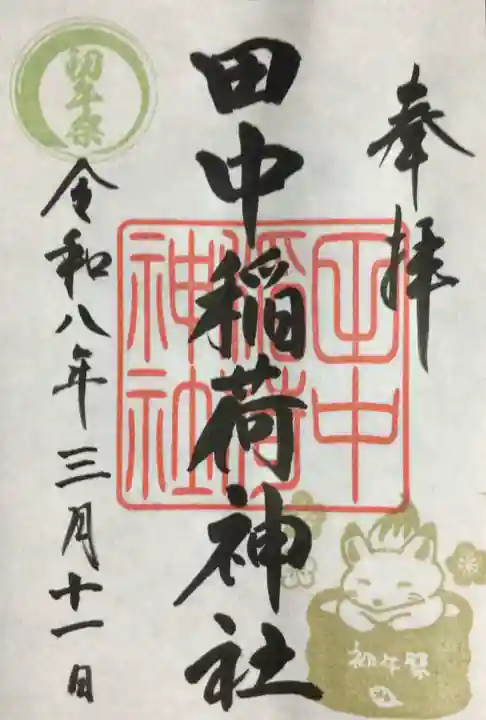 奉拝
田中稲荷神社
田中稲荷神社
初午祭
令和八年三月十一日
初午祭